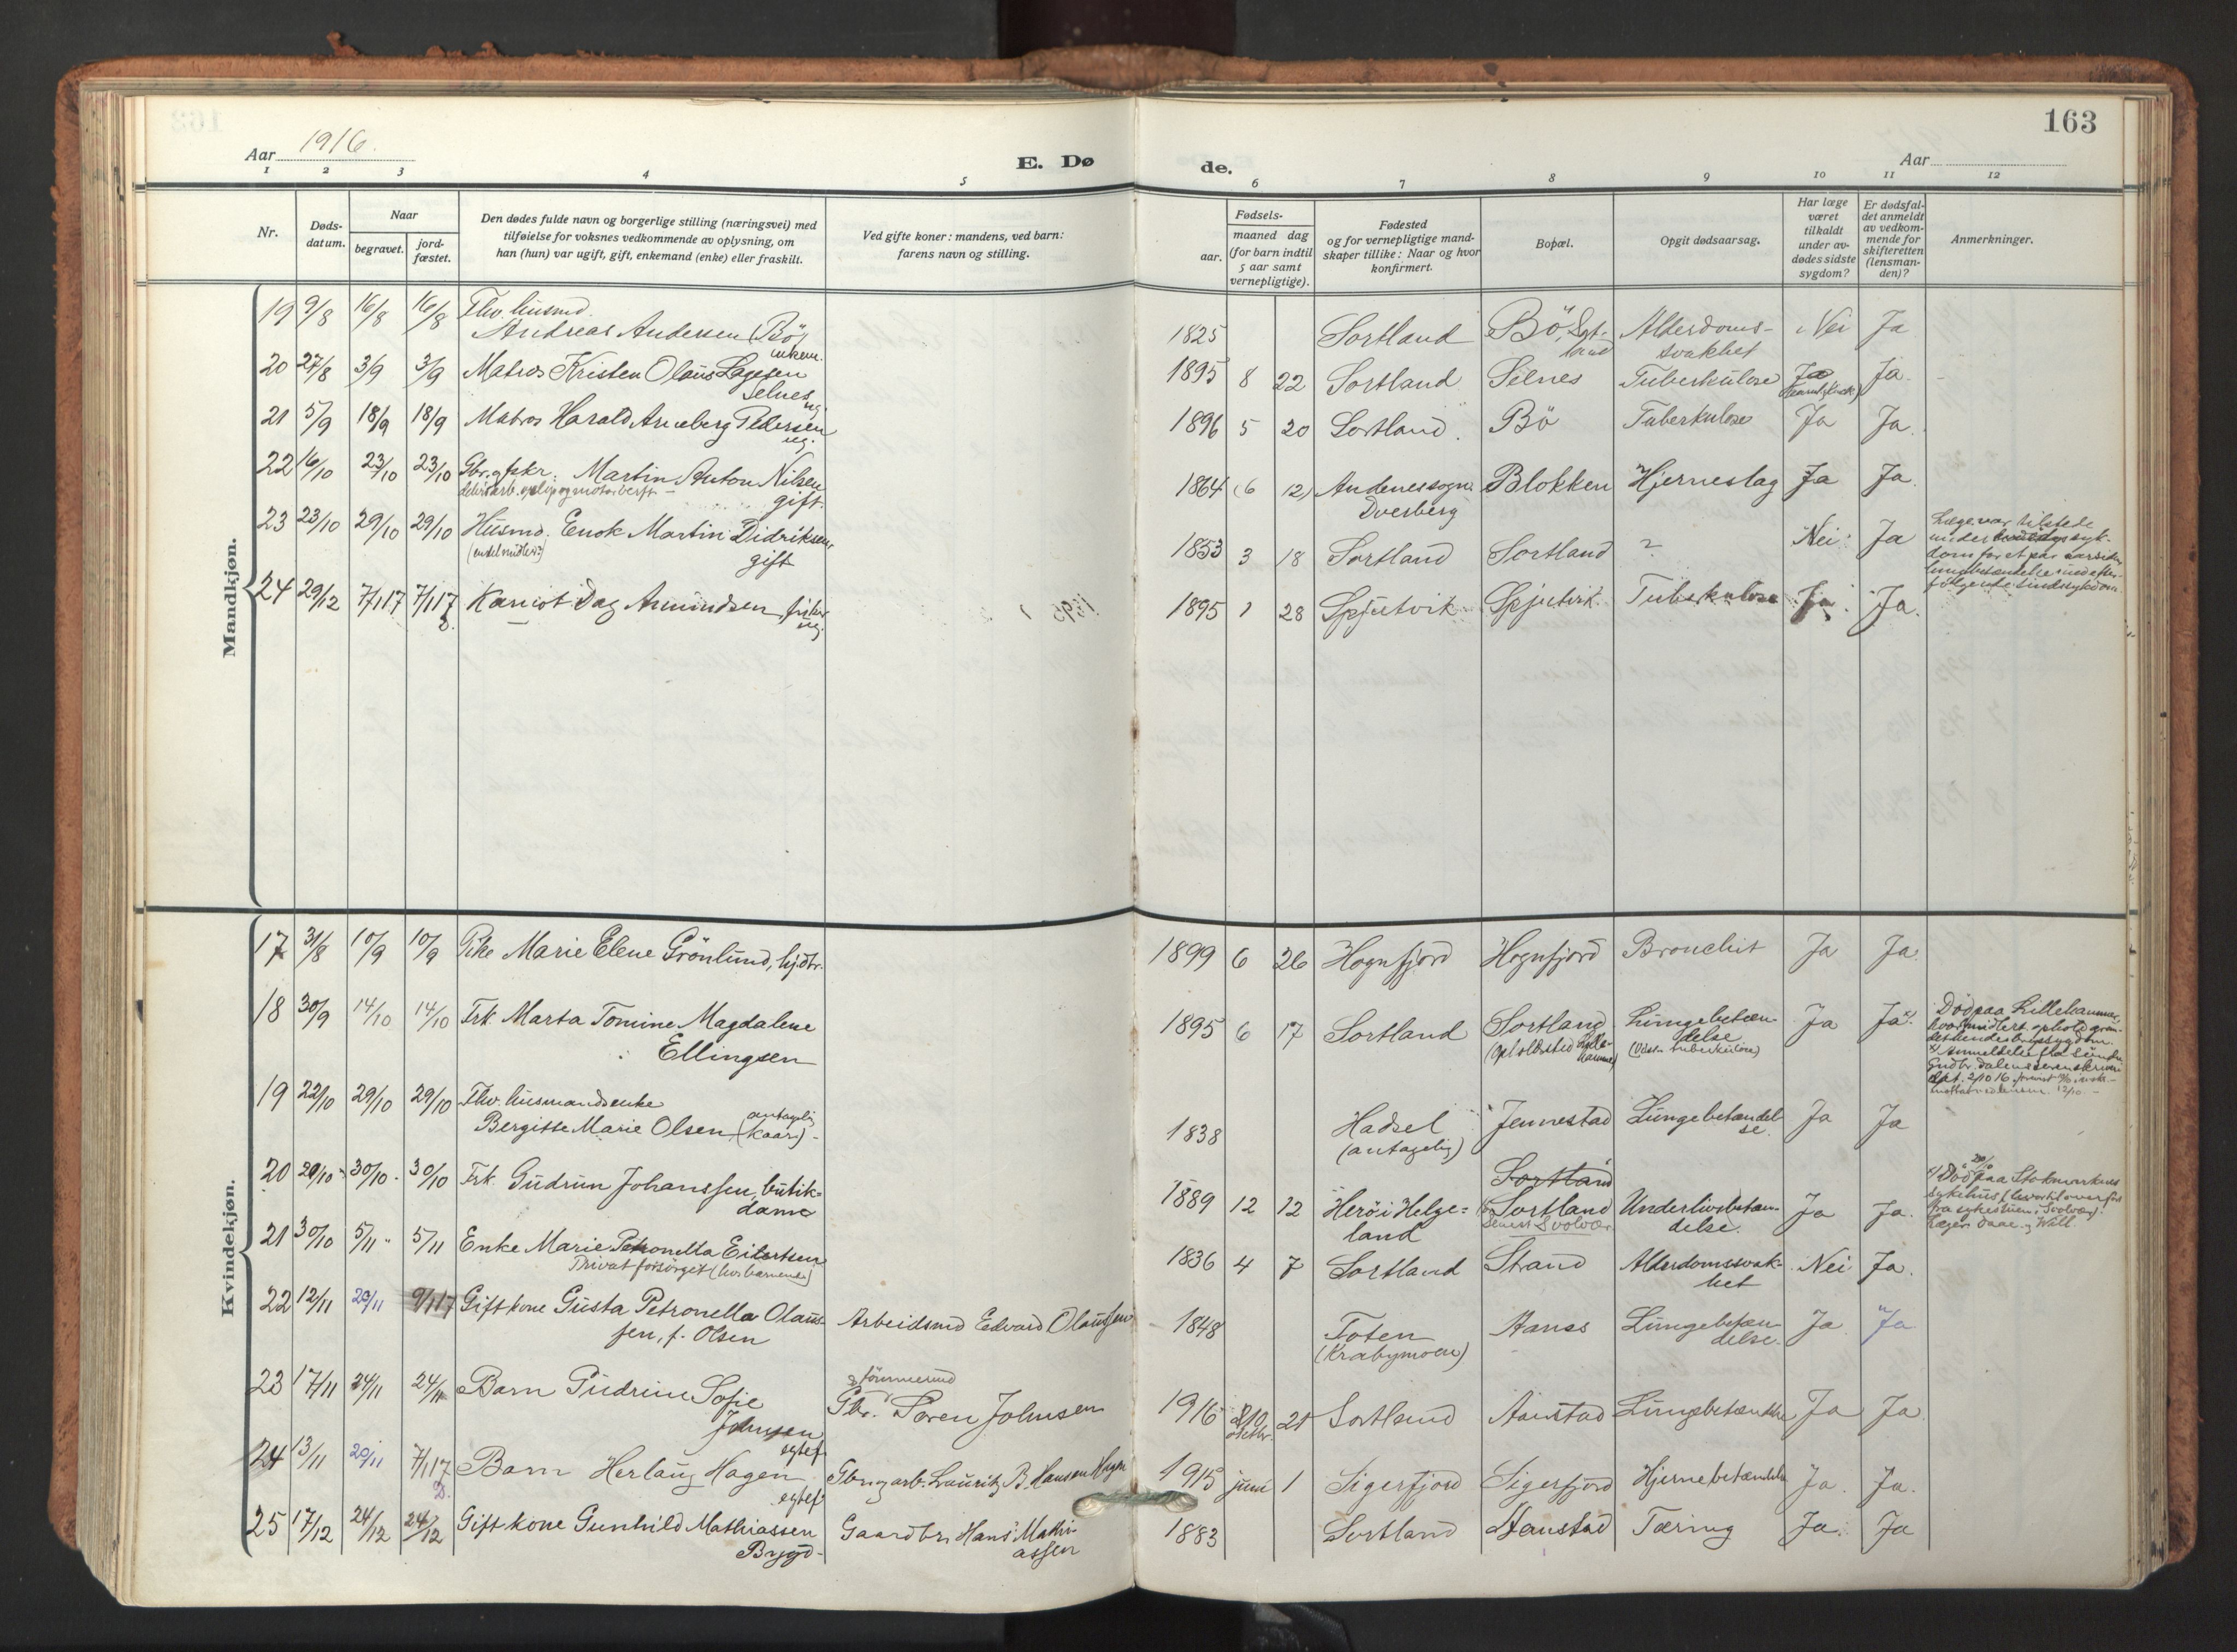 163
Aar 1916.
E. Dø
de.
Aar
1 2 3 4 5 6 7 8 9 10 11 12
Nr.
Døds-
datum.
Naar
begravet.
jord-
fæstet.
Den dødes fulde navn og borgerlige stilling (næringsvei) med
tilføielse for voksnes vedkommende av oplysning, om
han (hun) var ugift, gift, enkemand (enke) eller fraskilt.
Ved gifte koner: mandens, ved barn:
farens navn og stilling.
Fødsels-
aar.
maaned dag
(for barn indtil
5 aar samt
vernepligtige).
Fødested
og for vernepligtige mand-
skaper tillike: Naar og hvor
konfirmert.
Bopæl.
Opgit dødsaarsag.
Har læge
været
tilkaldt
under av-
dødes sidste
sygdom?
Er dødsfal-
det anmeldt
av vedkom-
mende for
skifteretten
(lensman-
den)?
Anmerkninger.
Mandkjøn.
19 9/8 16/8 16/8 Fhv. husmd.
Andreas Andersen (Bö) 1825 Sortland Bö, Sort-
land Alderdoms-
svakhet Nei Ja
enkem.
20 27/8 3/9 3/9 Matros Kristen Olaus Lagesen 1895 8 22 Sortland Selnes Tuberkulose Ja Ja
Selnes ug.
21 5/9 18/9 18/9 Matros Harald Arneberg Pedersen 1896 5 20 Sortland. Bö Tuberkulose Ja Ja.
ug.
22 16/10 23/10 23/10 Gbr. og fskr. Martin Anton Nilsen 1864 (6 12) Andenes sogn Blokken Hjerneslag Ja Ja.
gift. Dverberg
23 23/10 29/10 29/10 Husmd. Enok Martin Didriksen, 1853 3 18 Sortland Sortland ? Nei Ja Læge var tilstede
gift
24 29/12 7/1 17 7/1 17 Kanist Dag Amundsen, fisker 1895 1 28 Spjutvik Spjutvik Tuberkulose Ja Ja.
ug.
Kvindekjøn.
17 31/8 10/9 10/9 Pike Marie Elene Grönlund, hj.dtr. 1899 6 26 Hognfjord Hognfjord Bronchit Ja Ja.
18 30/9 14/10 14/10 Frk. Marta Tomine Magdalene 1895 6 17 Sortland Sortland Lungebetæn- Ja Ja Död paa Lillehammer,
Ellingsen delse
19 22/10 29/10 29/10 Fhv. husmandsenke
Bergitte Marie Olsen (antagelig Kaar) 1838 Hadsel
(antagelig) Jennestad Lungebetændel-
se. Ja Ja
20 20/10 30/10 30/10 Frk. Gudrun Johanssen, butik-
dame 1889 12 12 Herö i Helge-
land Sortland Sortland
senest Svolvær Underlivsbetæn-
delse. Ja Ja. Död paa Stokmarknes
sykehus
21 30/10 5/11 5/11 Enke Marie Petronella Eilertsen 1836 4 7 Sortland Strand Alderdomssvak-
het Nei Ja.
Privat forsörget (hos barnene)
22 12/11 20/11 9/1 17 Gift kone Gusta Petronella Olaus-
sen, f. Olsen Arbeidsmd Edvard Olaussen 1848 Toten
(Krabymoen) Aanes Lungebetæn-
delse. Ja Ja
23 17/11 24/11 24/11 Barn Gudrun Sofie
Johnsen
egtef. Gbr. Sören Johnsen 1916 10
oktbr. 21 Sortland Aanstad Lungebetændelse Ja Ja
24 13/11 20/11 7/1 17 Barn Herlaug Hagen
egtef. Gbr. og arb. Lauritz B. Hansen Hagen 1915 juni 1 Sigerfjord Sigerfjord Hjernebetændelse Ja. Ja.
25 17/12 24/12 24/12 Gift kone Gunhild Mathiassen Gaardbr. Hans Mathi-
assen 1883 Sortland Aanstad Tæring Ja. Ja
Bygd-